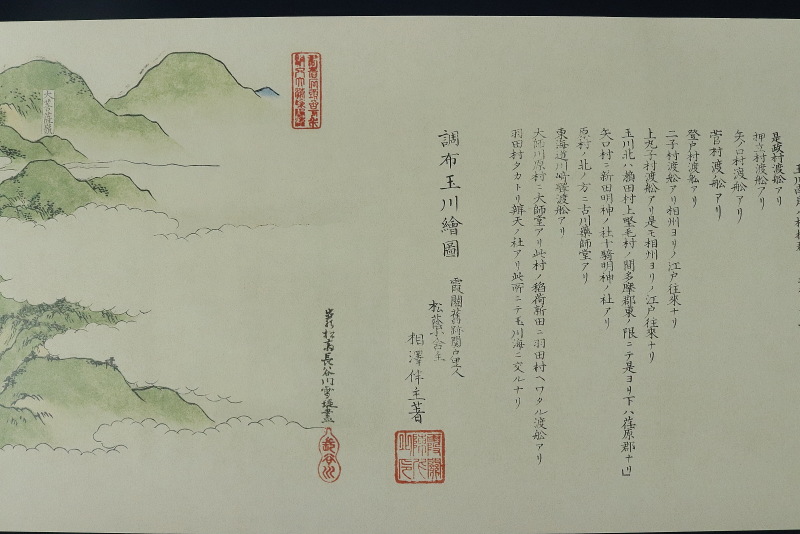 是政村渡舩アリ
押立村渡舩アリ
矢ノ口村渡舩アリ
菅村渡ノ舩アリ
登戸村渡舩アリ
二子村渡舩アリ相州ヨリノ江戸往來ナリ
上丸子村渡舩アリ是モ相州ヨリノ江戸往來ナリ
玉川北ハ瀬田村上野毛村ノ間多摩郡東ノ限ニテ是ヨリ下ハ荏原郡ナリ
矢口村ニ新田明神ノ社十騎明神ノ社アリ
原村ノ北ノ方ニ古川藥師堂アリ
東海道川崎驛渡舩アリ
大師川原村ニ大師堂アリ此村ノ稲荷新田ニ羽田村ヘワタル渡舩アリ
羽田村タカトリ辨天ノ社アリ此所ニテ玉川海ニ交ルナリ
調布玉川繪圖
霞關舊跡関戸里人
松蔭小舎主
相澤伴主著
長谷川雪堤畫
長谷川